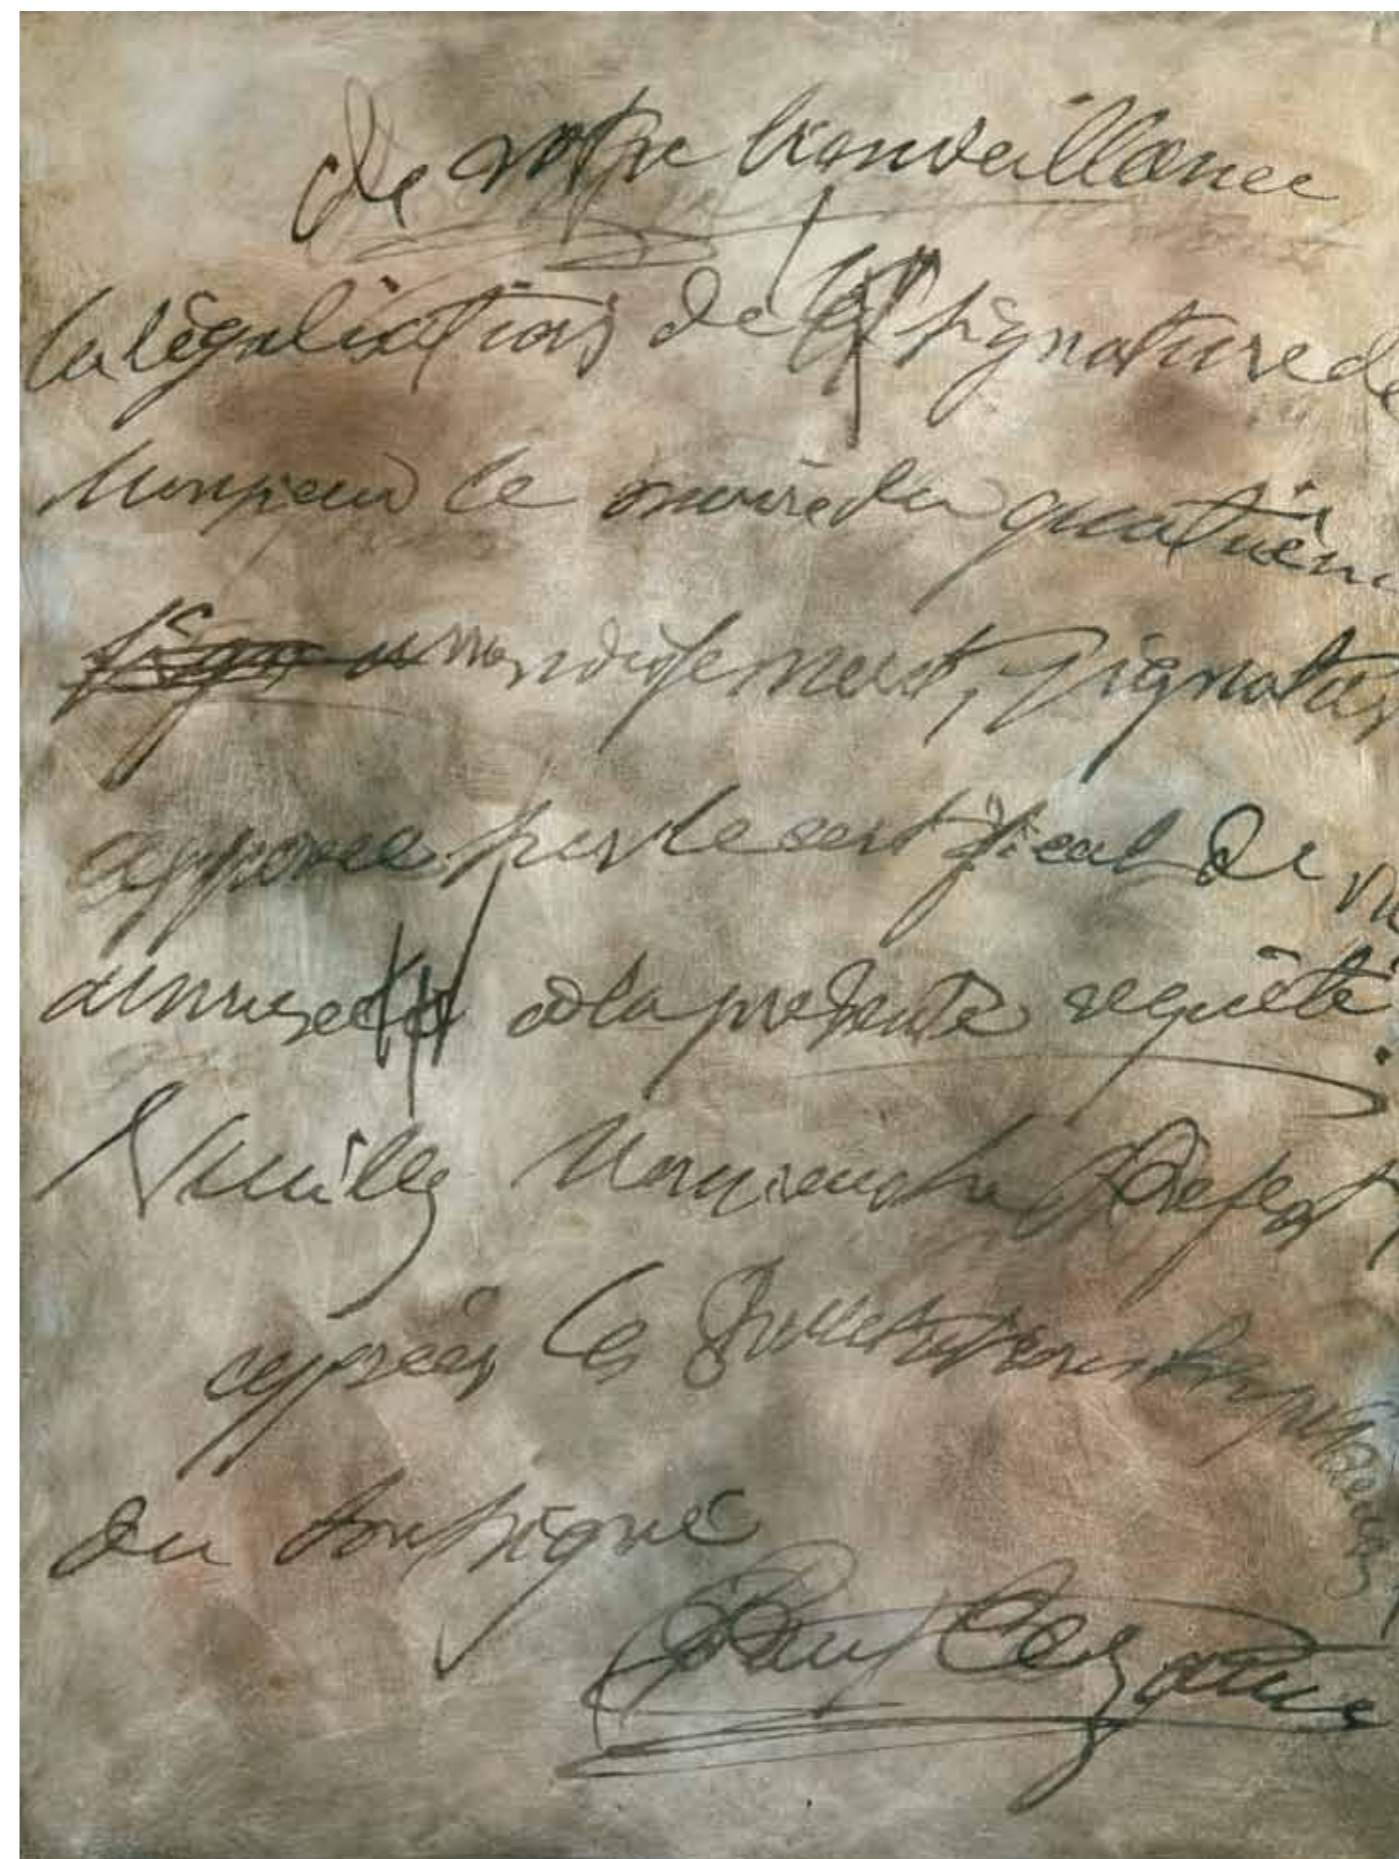 de votre bienveillance
la légalisation de la signature de
Monsieur le maire du quatrième
arrondissement, signature
apposée sur le certificat de vie
annexé à la présente requête.
Veuillez Monsieur le Préfet,
agréer les salutations empressées
du soussigné
Paul Cezanne